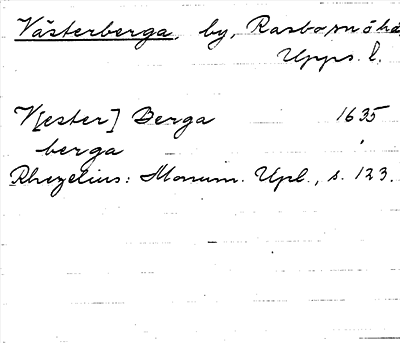 Västerberga, by, Rasbo
Upps. l.
V[ester] Berga 1635
berga
Rhezelius: Monum. Upl., s. 123.